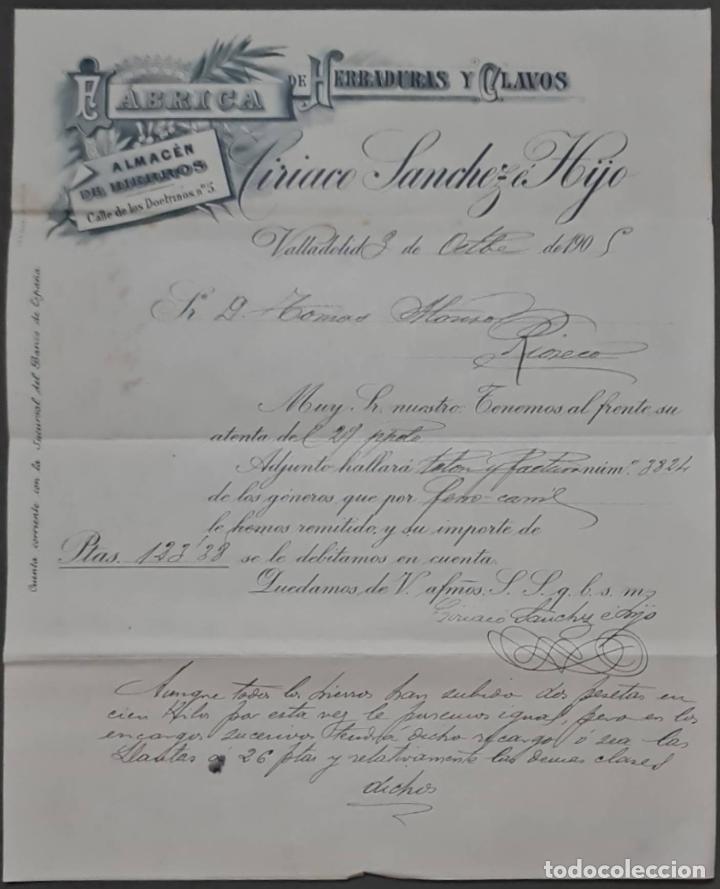 FÁBRICA DE HERRADURAS Y CLAVOS
ALMACÉN
DE HIERROS
Calle de los Doctrinos, nº 5
Ciriaco Sanchez é Hijo
Valladolid 3 de Octbe de 1905
Sr. D. Tomas Alonso
Rioseco
Muy Sr. nuestro: Tenemos al frente su
atenta del 29 ppdo
Adjunto hallará talon y factura núm.º 3824
de los géneros que por ferro-carril
le hemos remitido, y su importe de
Ptas. 123'38 se le debitamos en cuenta.
Quedamos de V. afmos. S. S. q. b. s. m.
Ciriaco Sanchez é Hijo
Aunque todos los hierros han subido dos pesetas en
cien kilos por esta vez le ponemos igual, pero en los
encargos sucesivos tendrá dicho recargo ó sea las
llantas á 26 ptas y relativamente las demas clases
dichos
Cuenta corriente con la Sucursal del Banco de España.
todocoleccion.net